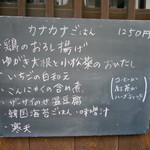 カナカナごはん 1250円
・鶏のおろし揚げ
・ゆがき大根と小松菜のおひたし
・いちじの白和え
・こんにゃくの含め煮
・ザーサイのせ温豆腐
・韓国海苔ごはん・味噌汁
・寒天
コーヒーか
紅茶か
ハーブティー